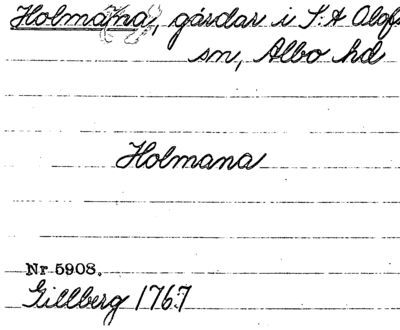 Holmana, gårdar i S:t Olofs
sn, Albo hd
Holmana
Nr 5908.
Gillberg 1767